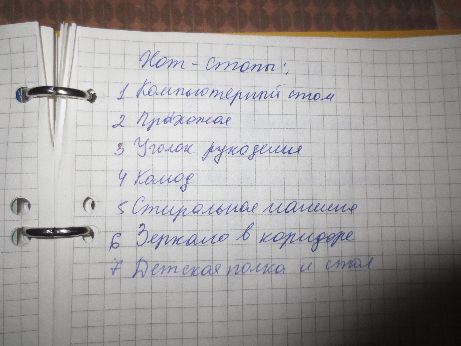 Хот-споты:
1 Компьютерный стол
2 Прихожая
3 Уголок рукоделия
4 Комод
5 Стиральная машина
6 Зеркало в коридоре
7 Детская полка и стол